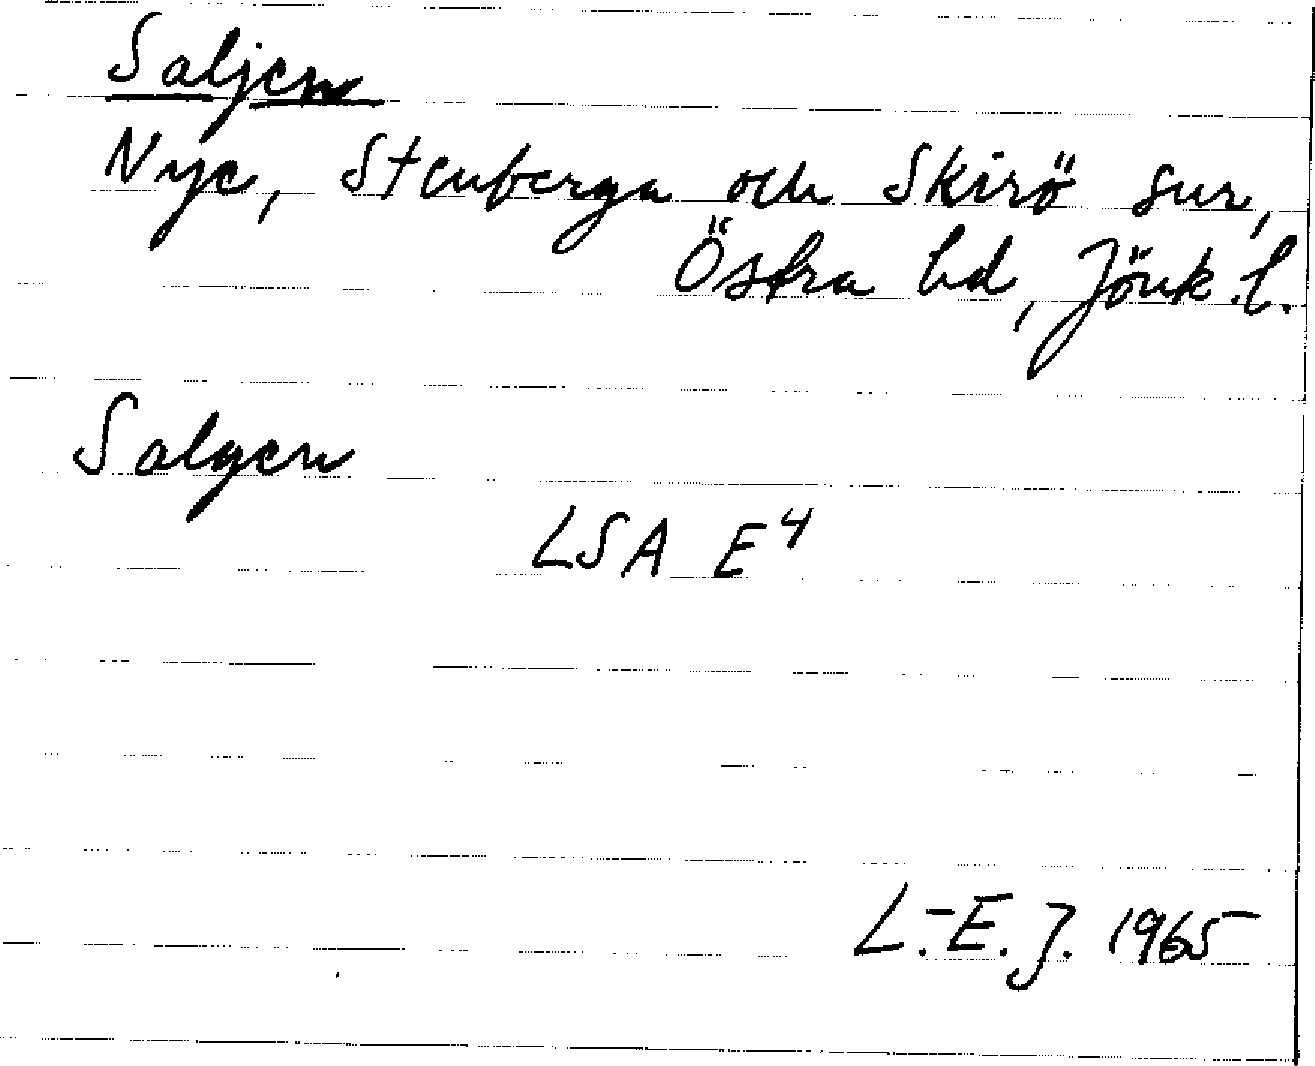 Saljen
Nye, Stenberga och Skirö snr,
Östra hd, Jönk. l.
Salgen
LSA E4
L.-E. J. 1965